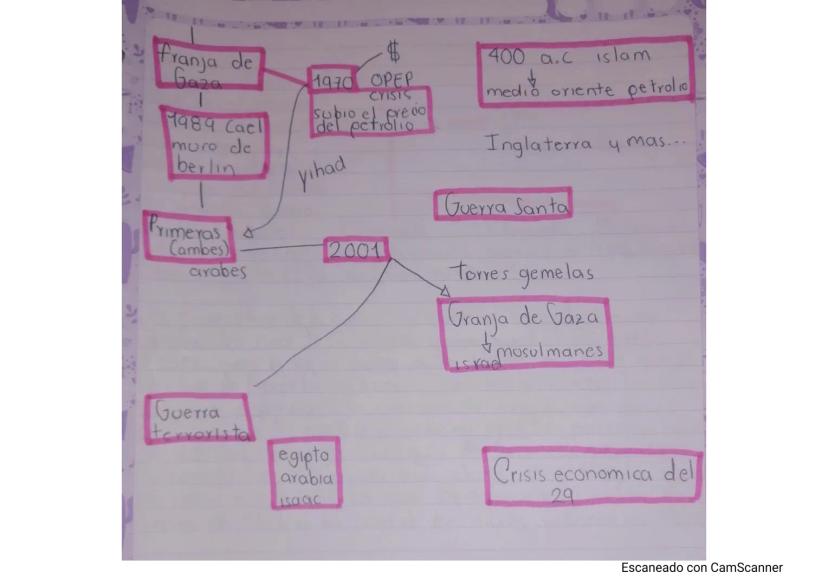 franja de
Gaza
1970 OPEP
$
crisis
subio el precio
del petrolio
400 a.c islam
medio oriente petrolio
Inglaterra y mas...
1989 Cael
muro de
berlin
yihad
Guerra Santa
Primeras
(ambes)
arabes
2001
Torres gemelas
Granja de Gaza
musulmanes
israel
Guerra
terrorista
egipto
arabia
isaac
Crisis economica del
29
Escaneado con CamScanner